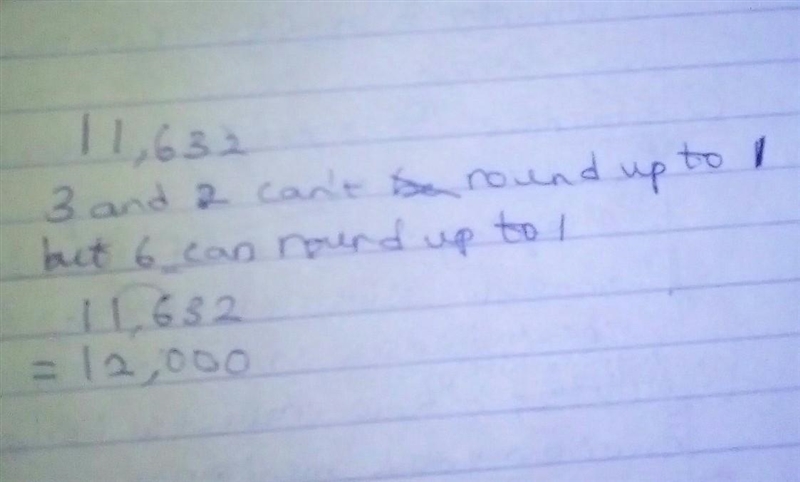 11,632
3 and 2 can't round up to 1
but 6 can round up to 1
11,632
= 12,000